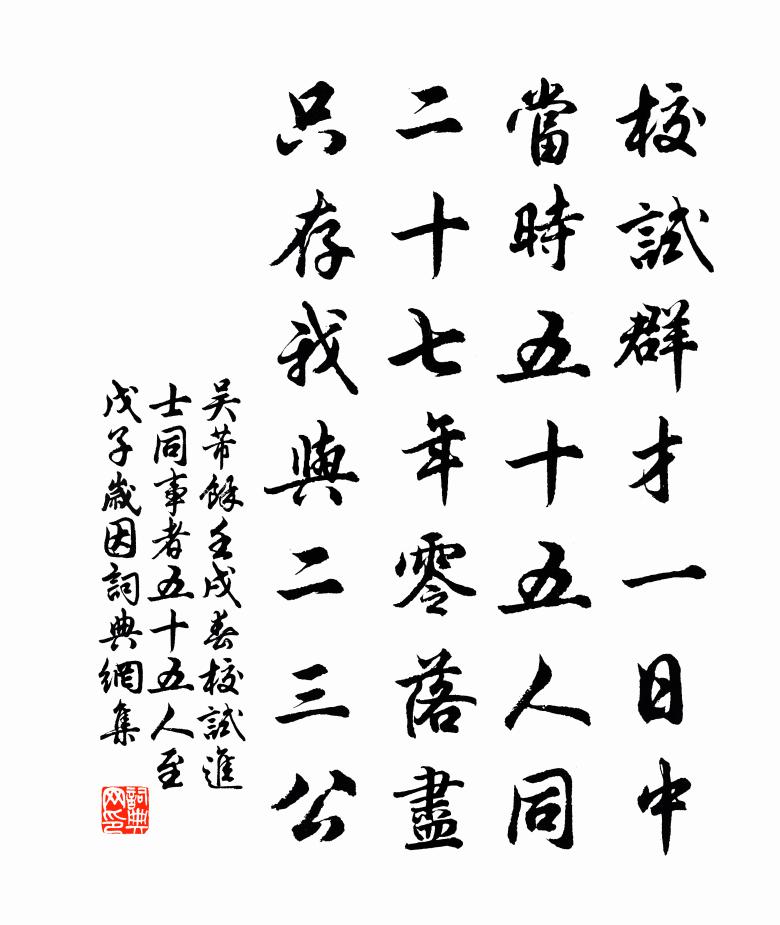 校試群才一日中
當時五十五人同
二十七年零落盡
只存我與二三公
吳芾餘壬戌春校試進
士同事者五十五人至
戊子歲因詞典網集
詞典網印